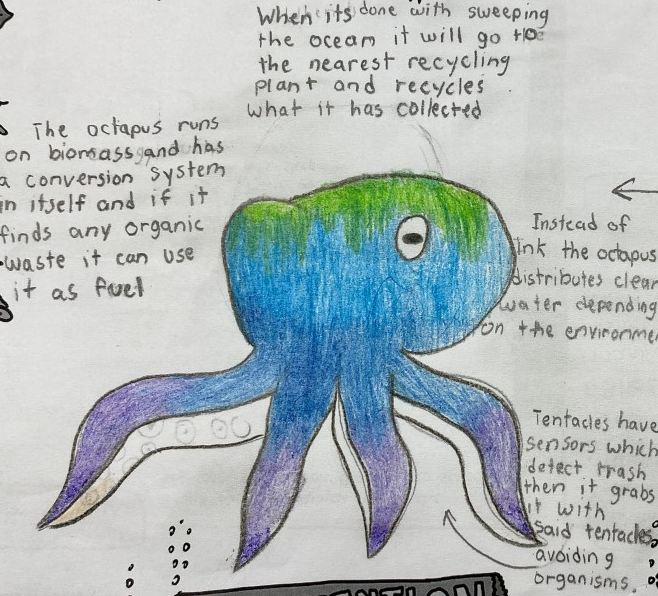 When its done with sweeping
the ocean it will go to
the nearest recycling
plant and recycles
what it has collected
The octapus runs
on biomass and has
a conversion system
in itself and if it
finds any organic
waste it can use
it as fuel
Instead of
ink the octopus
distributes clear
water depending
on the environme
Tentacles have
sensors which
detect trash
then it grabs
it with
said tentacles
avoiding
organisms.